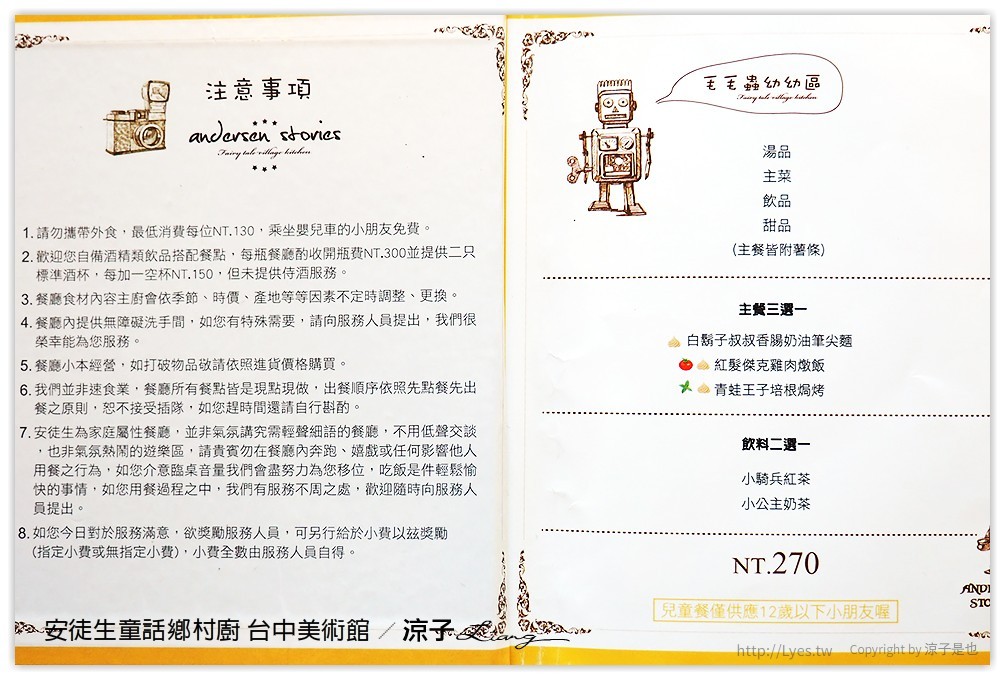 注意事項
andersen stories
Fairy tale village kitchen
1.請勿攜帶外食，最低消費每位NT.130，乘坐嬰兒車的小朋友免費。
2.歡迎您自備酒精類飲品搭配餐點，每瓶餐廳酌收開瓶費NT.300並提供二只
標準酒杯，每加一空杯NT.150，但未提供侍酒服務。
3.餐廳食材內容主廚會依季節、時價、產地等等因素不定時調整、更換。
4.餐廳內提供無障礙洗手間，如您有特殊需要，請向服務人員提出，我們很
榮幸能為您服務。
5.餐廳小本經營，如打破物品敬請依照進貨價格購買。
6.我們並非速食業，餐廳所有餐點皆是現點現做，出餐順序依照先點餐先出
餐之原則，恕不接受插隊，如您趕時間還請自行斟酌。
7.安徒生為家庭屬性餐廳，並非氣氛講究需輕聲細語的餐廳，不用低聲交談
，也非氣氛熱鬧的遊樂區，請貴賓勿在餐廳內奔跑、嬉戲或任何影響他人
用餐之行為，如您介意臨桌音量我們會盡努力為您移位，吃飯是件輕鬆愉
快的事情，如您用餐過程之中，我們有服務不周之處，歡迎隨時向服務人
員提出。
8.如您今日對於服務滿意，欲獎勵服務人員，可另行給於小費以茲獎勵
(指定小費或無指定小費)，小費全數由服務人員自得。
毛毛蟲幼幼區
Fairy tale village kitchen
湯品
主菜
飲品
甜品
(主餐皆附薯條)
主餐三選一
白鬍子叔叔香腸奶油筆尖麵
紅髮傑克雞肉燉飯
青蛙王子培根焗烤
飲料二選一
小騎兵紅茶
小公主奶茶
NT.270
兒童餐僅供應12歲以下小朋友喔
ANDE
STO
安徒生童話鄉村廚 台中美術館 ／ 涼子 Liang
http://Lyes.tw Copyright by 涼子是也